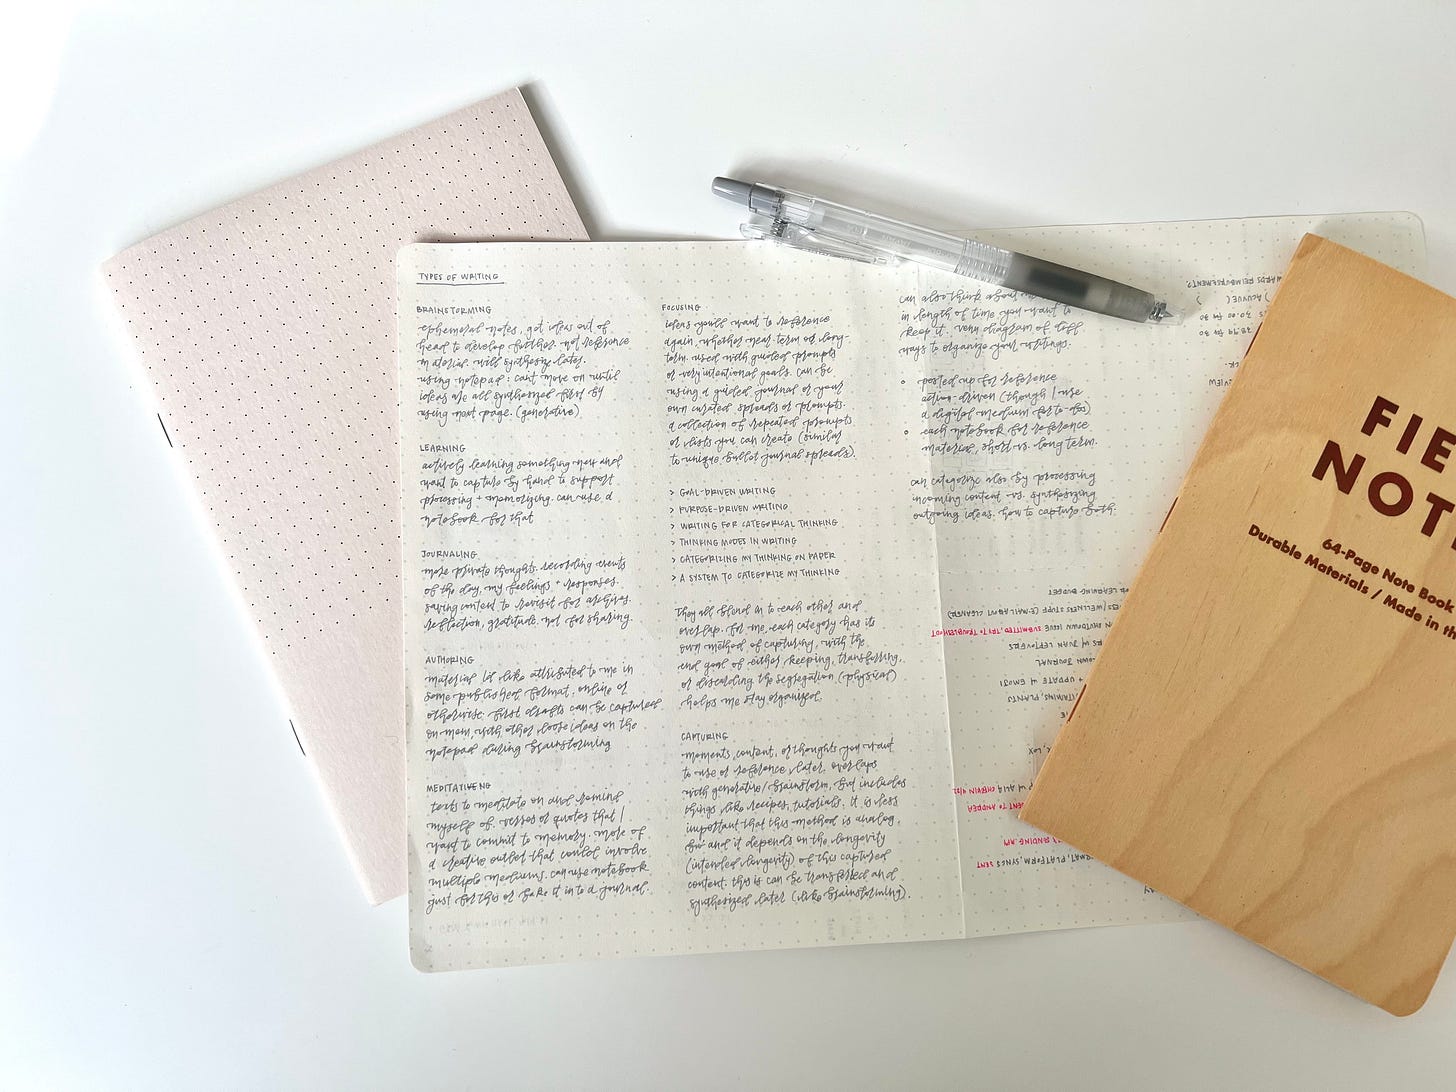 TYPES OF WRITING
BRAINSTORMING
ephemeral notes, get ideas out of
head to develop further. not reference
material. will synthesize later.
using notepad: can't move on until
ideas are all synthesized first by
using next page. (generative)
LEARNING
actively learning something new and
want to capture by hand to support
processing + memorizing. can use a
notebook for that
JOURNALING
more private thoughts. recording events
of the day, my feelings + responses.
saving content to revisit for archives.
reflection, gratitude. not for sharing.
AUTHORING
material i'd like attributed to me in
some published format, online or
otherwise. first drafts can be captured
on mem, with other loose ideas on the
notepad during brainstorming
MEDITATIVE
texts to meditate on and remind
myself of. verses or quotes that I
want to commit to memory. more of
a creative outlet that could involve
multiple mediums. can use notebook
just for this or bake it into a journal.
FOCUSING
ideas you'll want to reference
again, whether near term or long-
term. used with guided prompts
or very intentional goals. can be
using a guided journal or your
own curated spreads or prompts.
a collection of repeated prompts
or lists you can create (similar
to unique bullet journal spreads).
> GOAL-DRIVEN WRITING
> PURPOSE-DRIVEN WRITING
> WRITING FOR CATEGORICAL THINKING
> THINKING MODES IN WRITING
> CATEGORIZING MY THINKING ON PAPER
> A SYSTEM TO CATEGORIZE MY THINKING
they all blend in to each other and
overlap. for me, each category has its
own method of capturing, with the
end goal of either keeping, transferring,
or discarding. the segregation (physical)
helps me stay organized.
CAPTURING
moments, content, or thoughts you want
to use or reference later. overlaps
with generative/brainstorm, but includes
things like recipes, tutorials. it is less
important that this method is analog,
but and it depends on the longevity
(intended longevity) of this captured
content. this is can be transferred and
synthesized later (like brainstorming).
can also think about
in length of time you want to
keep it. venn diagram of diff
ways to organize your writings.
• posted up for reference
action-driven (though I use
a digital medium for to-dos)
• each notebook for reference
material, short vs. long term.
can categorize also by processing
incoming content vs. synthesizing
outgoing ideas. how to capture both.
REIMBURSEMENT?
) ACUVUE (
LEARNING BUDGET
WELLNESS STUFF (EMAIL ABOUT CLEANER)
SHUTDOWN ISSUE SUBMITTED, TRY TO TROUBLESHOOT
W/ JUAN LEFTOVERS
OWN JOURNAL
+ UPDATE W/ EMOJI
VITAMINS, PLANTS
SENT TO ANDREA
PLATFORM, SYNCS SENT
FIE
NOT
64-Page Note Book
Durable Materials / Made in th